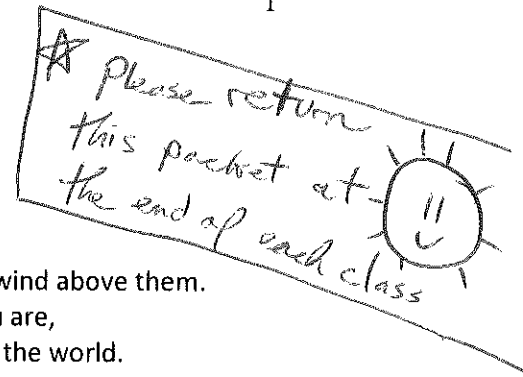 1
Please return
this packet at
the end of each class
wind above them.
u are,
the world.